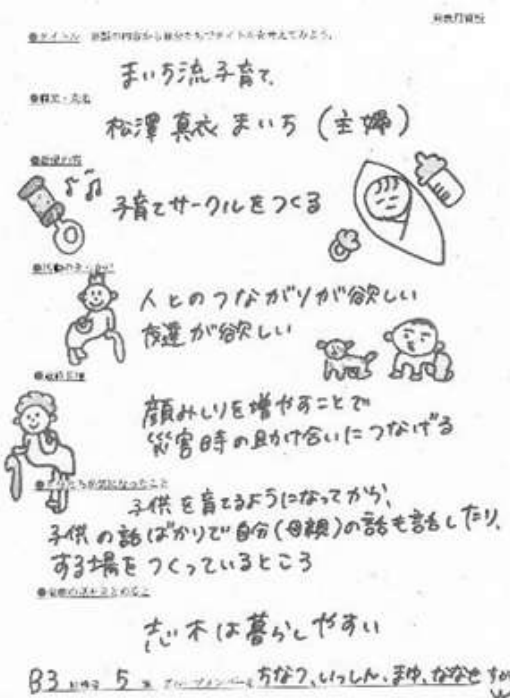 発表用資料
●タイトル 会話の内容から自分たちでタイトルを考えてみよう。
まいち流子育て。
松澤 真衣 まいち (主婦)
子育てサークルをつくる
人とのつながりが欲しい
友達が欲しい
顔みしりを増やすことで
災害時の助け合いにつなげる
子供を育てるようになってから、
子供の話ばかりで自分(母親)の話も話したり、
する場をつくっているところ
志木は暮らしやすい
B3 5 ちなつ、いっしん、まゆ、ななせ